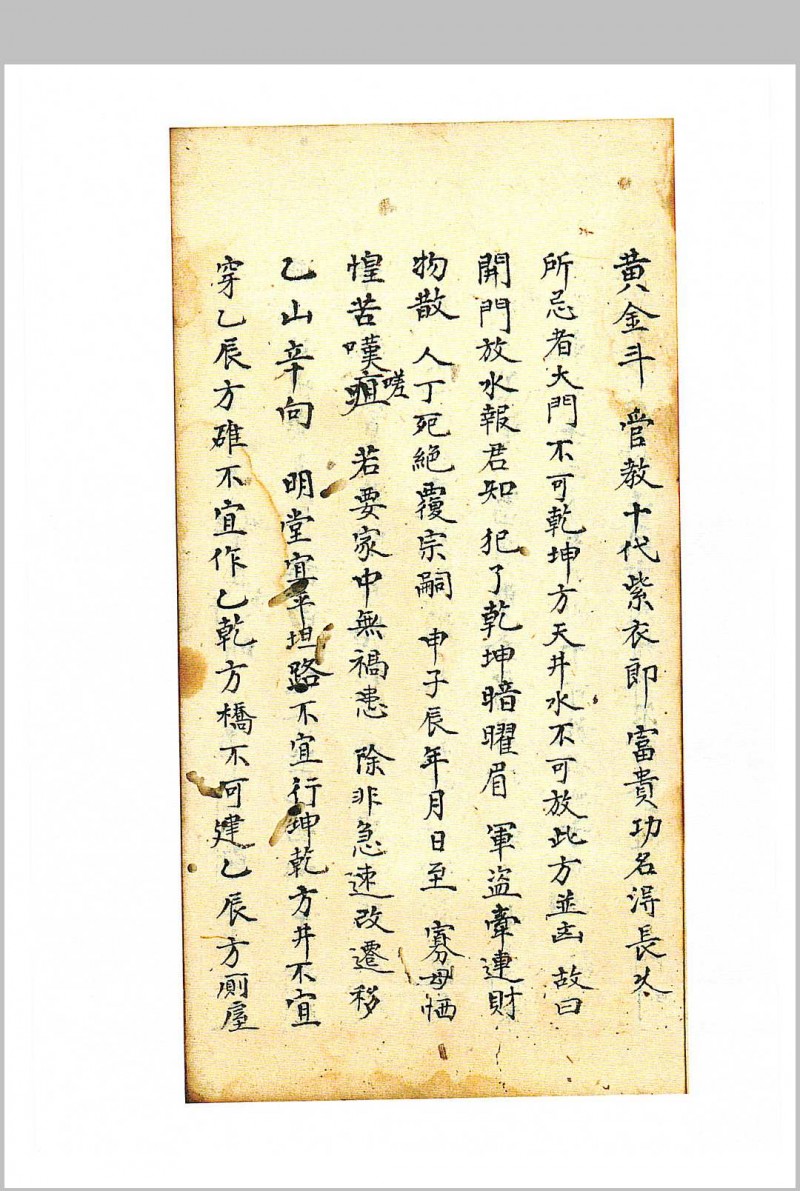 黃金斗 管教十代紫衣郎 富貴功名淂長久
所忌者大門不可乾坤方天井水不可放此方並凶 故曰
開門放水報君知 犯了乾坤暗曜眉 軍盗牽連財
物散 人丁死絕覆宗嗣 申子辰年月日至 寡母恓
惶苦嘆嗟 若要家中無禍患 除非急速改遷移
乙山辛向 明堂宜平坦路不宜行坤乾方井不宜
穿乙辰方碓不宜作乙乾方橋不可建乙辰方厠屋